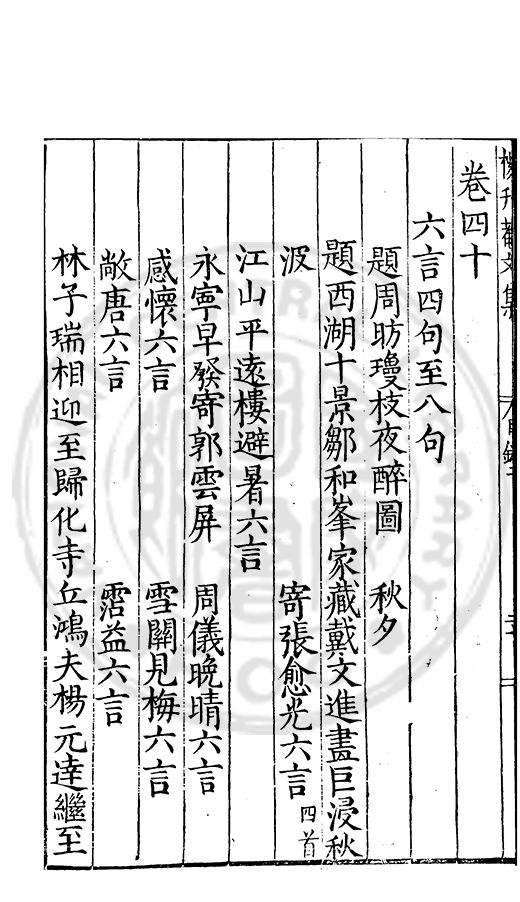 楊升菴文集 目錄
卷四十
六言四句至八句
題周昉瓊枝夜醉圖 秋夕
題西湖十景鄒和峯家藏戴文進畫巨浸秋
波 寄張愈光六言 四首
江山平遠樓避暑六言
永寧早發寄郭雲屏 周儀晚晴六言
感懷六言 雪關見梅六言
敞唐六言 霑益六言
林子瑞相迎至歸化寺丘鴻夫楊元達繼至